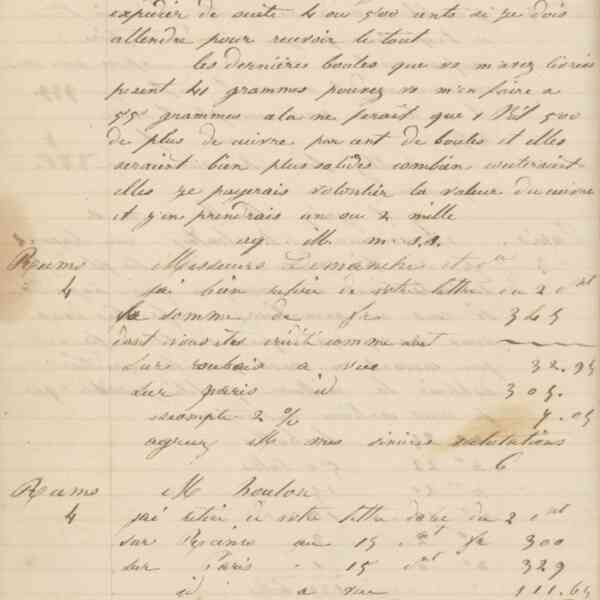 expédier de suite 4 ou 500 cents si je dois
attendre pour recevoir le tout
les dernières boules que vs m'avez livrées
pesent 41 grammes pouvez vs m'en faire a
55 grammes cela ne ferait que 1 Kil 500
de plus de cuivre par cent de boules et elles
seraient bien plus solides combien couteraient
elles je payerais volontier la valeur du cuivre
et j'en prendrais un ou 2 mille
ag M m s.s.
Reims Messieurs
4 j'ai bien retiré de votre lettre du 2 ct
la somme de fr 345
dont vous êtes crédité comme suit
sur roubaix a vue 32.95
sur paris id 305.
escompte 2 % 7.05
agreez M mes sincères salutations
Reims M houlon
4 j'ai retiré de votre lettre du 2 ct
sur au 15 fr 300
sur Paris 15 329
id a vue 111.65